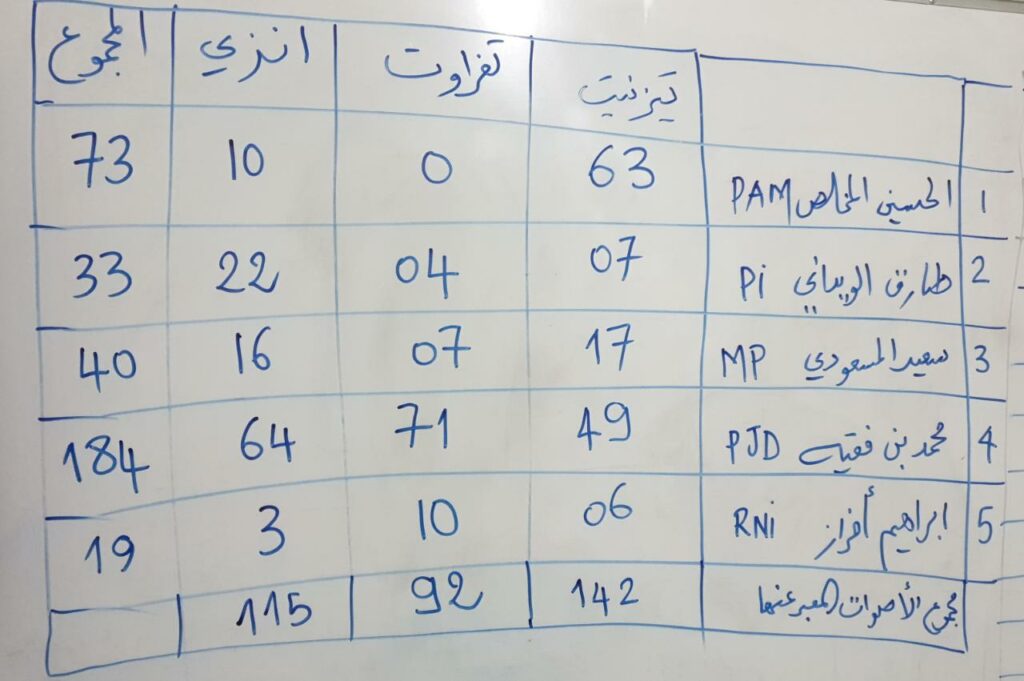 تيزنيت تفراوت انزي المجموع
1 الحسين المخلص PAM 63 0 10 73
2 طارق الويداني Pi 07 04 22 33
3 سعيد المسعودي MP 17 07 16 40
4 محمد بن فقيه PJD 49 71 64 184
5 ابراهيم أفراز RNi 06 10 3 19
مجموع الأصوات المعبر عنها 142 92 115